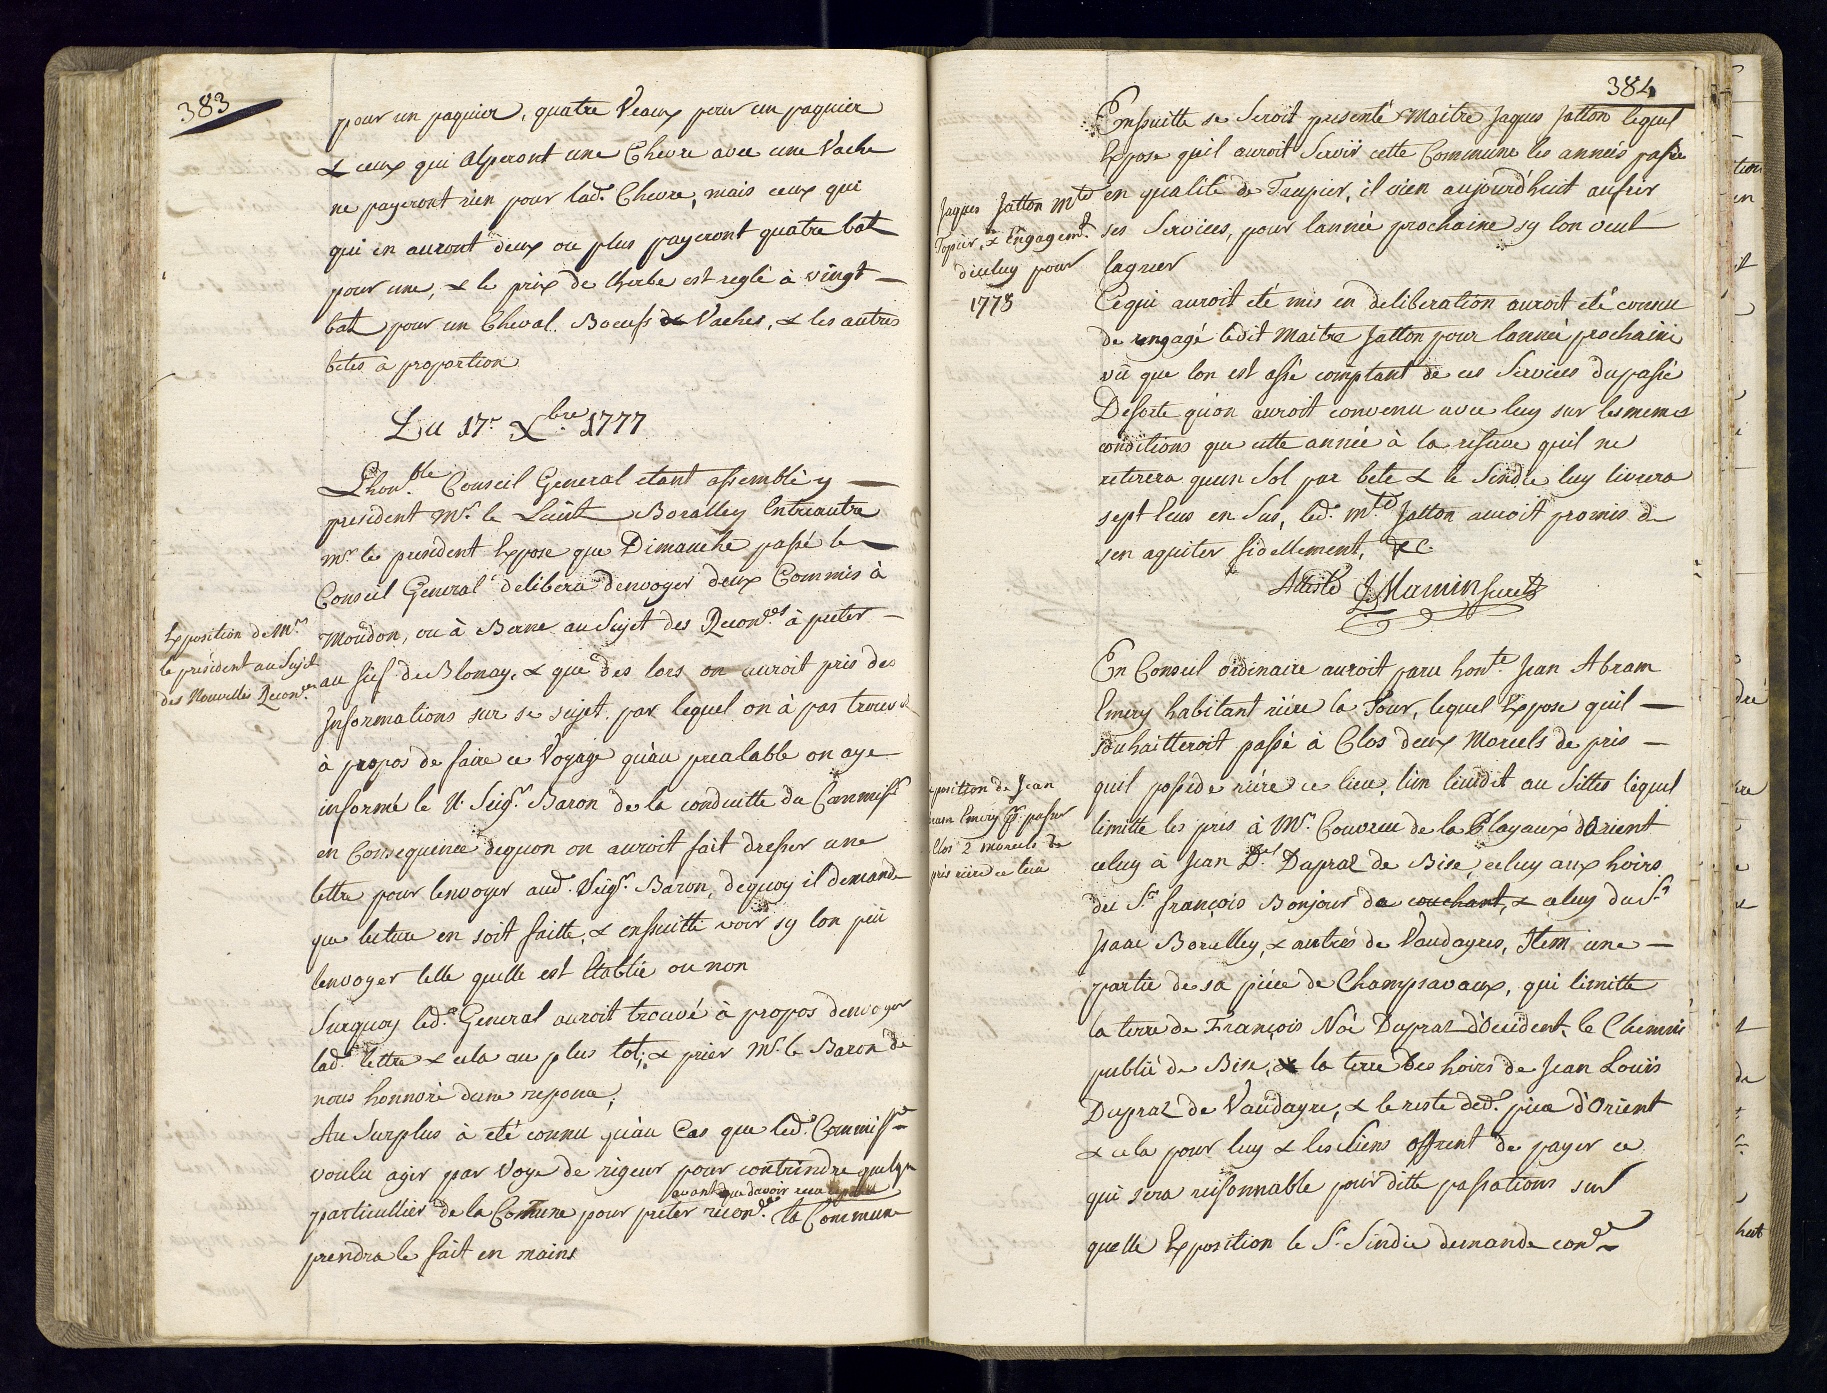 383
pour un paquier, quatre Veaux pour un paquier
& ceux qui alperont une Chevre avec une Vache
ne payeront rien pour lad.e Chevre, mais ceux qui
qui en auront deux ou plus payeront quatre bat
pour une, & le prix de lherbe est reglé à vingt —
bat pour un Cheval. Boeufs & Vaches, & les autres
betes à proportion
Du 17.e Xbre 1777
Lhon.ble Conseil General etant assemblé y —
president Mr. le Lieut Boralley Entreautre
Mr. le president Expose que Dimanche passé le —
Conseil General delibera denvoyer deux Commis à
Exposition de Mr.
le president au Sujet
des Nouvelles Recon.ces
Moudon, ou à Berne au Sujet des Recon.ces à preter —
au fief de Blonay, & que des lors on auroit pris des
Informations sur se sujet par lequel on à pas trouvé
à propos de faire ce Voyage qu'au prealable on aye
informé le N. Seigr. Baron de la conduitte du Commiss.re
en Consequence dequoy on auroit fait dresser une
lettre pour lenvoyer aud. Seigr. Baron, dequoy il demande
que lecture en soit faitte, & ensuitte voir sy lon peu
lenvoyer telle quelle est Etablie ou non
Surquoy led. General auroit trouvé à propos denvoyer
lad.e lettre & cela au plus tot, & prier Mr. le Baron de
nous honnoré dune reponce,
Au Surplus à eté connu qu'au Cas que led. Commiss.re
voulu agir par Voye de rigeur pour contrindre quelque
avant que davoir
particullier de la Comune pour preter recon.ce la Commune
prendra le fait en mains
384
Ensuitte se Seroit presenté Maitre Jaques Jatton lequel
Expose quil auroit Servir cette Commune les années passé
Jaques Jatton Mtre
Topier, & Engagem.t
diceluy pour
1778
en qualité de Taupier, il vien aujourd'huit aufrir
ses Services, pour lannée prochaine sy lon veut
lagreer
Ce qui auroit eté mis en deliberation auroit eté connu
de rengagé ledit Maitre Jatton pour lannée prochaine
vû que lon est assé comptant de ces Services du passé
Desorte qu'on auroit convenu avec luy sur les memes
conditions que cette année à la reserve quil ne
retirera quun Sol par bete & le Sindic luy livrera
sept Ecus en Sus, led. Mtre Jatton auroit promis de
sen aquiter fidellement, &c.
Attesté J. Mamin Secret
En Conseil ordinaire auroit paru hon.te Jean Abram
Emery habitant riere la Tour, lequel Expose quil —
souhaitteroit passé à Clos deux Morcels de pris —
position de Jean
ram Emery pr. passer
Clos 2 morcels de
pris riere ce lieu
quil possede riere ce lieu, l'un lieudit au Sittes lequel
limitte les pris à Mr. Couvreu de la Playaux d'Orient
celuy à Jean D.l Dupraz de Bise, celuy aux hoirs
du Sr. françois Bonjour de couchant, & celuy du Sr.
Isaac Boralley, & autres de Vaudayres, Item une —
partie de sa piece de Champsavaux, qui limitte
la terre de François Noé Dupraz d'Occident, le Chemin
public de Bise, & la terre des hoirs de Jean Louis
Dupraz de Vaudayre, & le reste de d. piece d'Orient
& cela pour luy & les Siens offrent de payer ce
qui sera reisonnable pour ditte passations sur
quelle Exposition le Sr. Sindic demande con.ce —